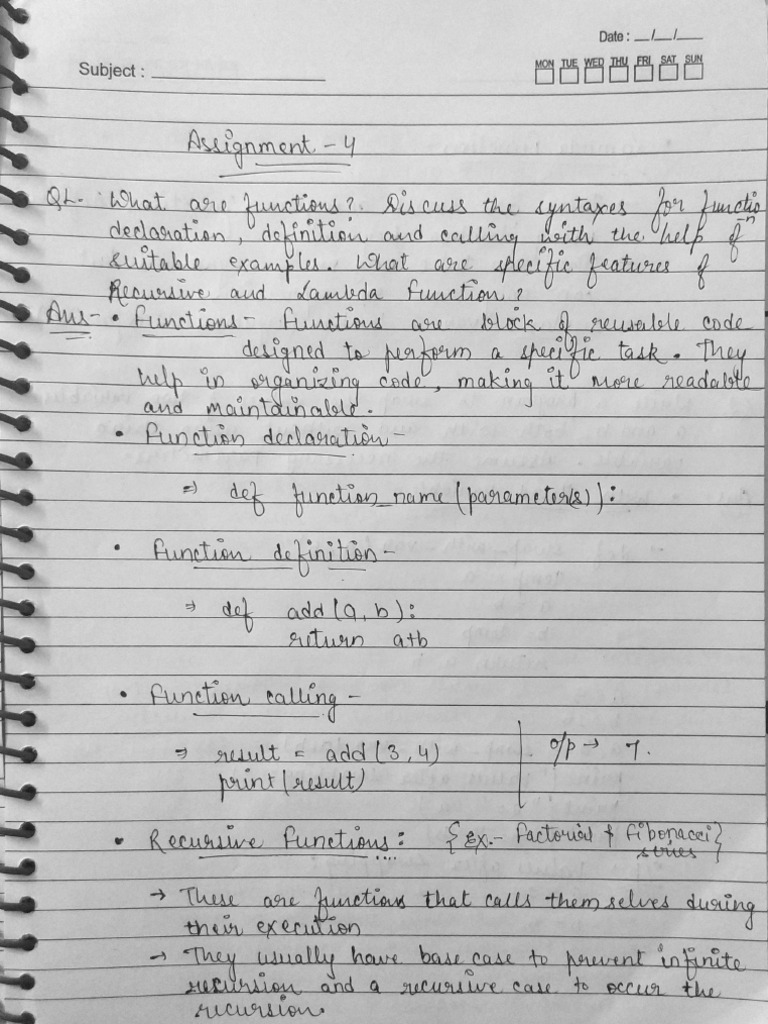 Date : __/__/___
Subject : ____________________
MON TUE WED THU FRI SAT SUN
Assignment - 4
Q1. What are functions? Discuss the syntaxes for functio
-n
declaration, definition and calling with the help of
suitable examples. What are specific features of
Recursive and Lambda function?
Ans- • Functions - Functions are block of reusable code
designed to perform a specific task. They
help in organizing code, making it more readable
and maintainable.
• Function declaration -
⇒ def function_name (parameter(s)):
• Function definition -
⇒ def add (a, b):
return a+b
• Function calling -
⇒ result = add (3, 4)
print (result)
o/p → 7.
• Recursive Functions: {Ex.- Factorial & Fibonacci
series}
→ These are functions that calls themselves during
their execution
→ They usually have base case to prevent infinite
recursion and a recursive case to occur the
recursion.